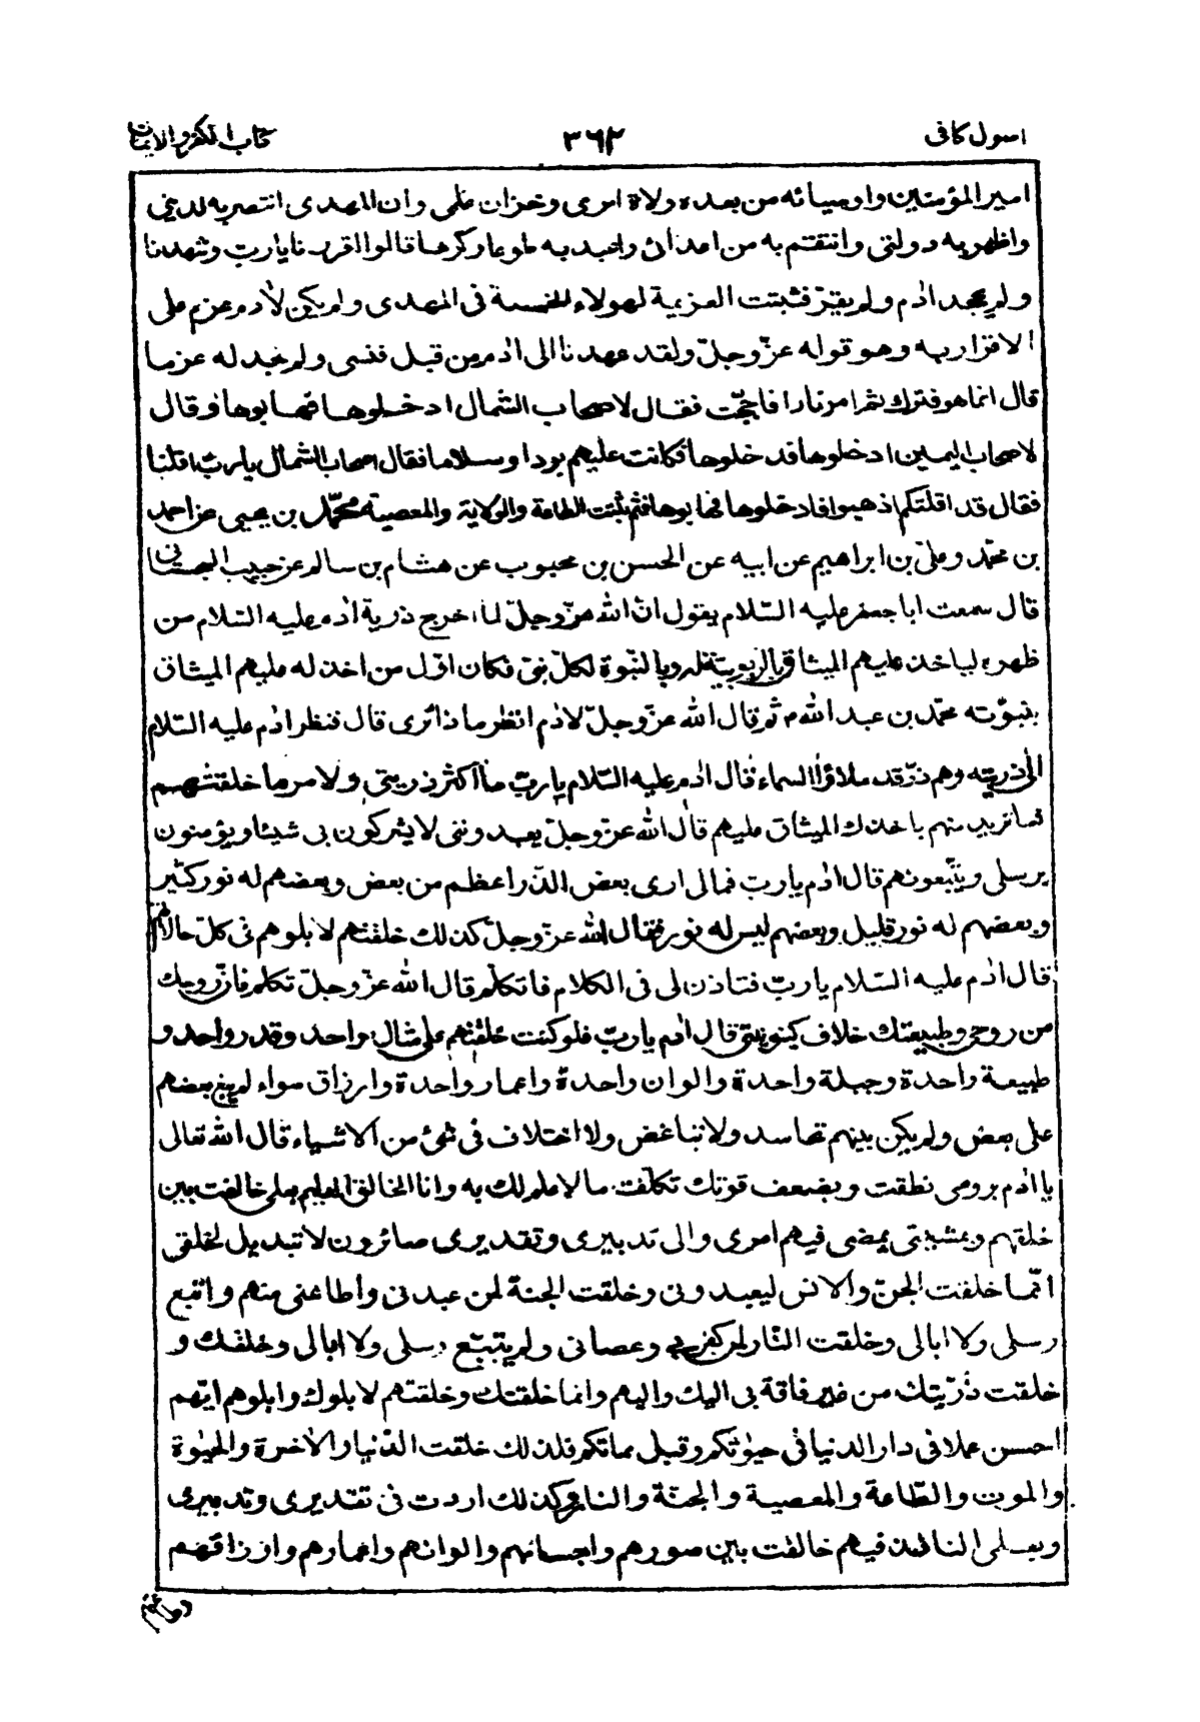 اصول کافی
۳۶۲
کتاب الکفر والایمان
امیرالمؤمنین واوصیائه من بعده ولاة امری وخزان علمی وان المهدی انتصر به لدینی
واظهر به دولتی وانتقم به من اعدائی واعبد به طوعا وکرها قالوا اقررنا یارب وشهدنا
ولم یجحد اٰدم ولم یقرّ فثبتت العزیمة لهولاء الخمسة فی المهدی ولم یکن لاٰدم عزم علی
الاقرار به وهو قوله عزّ وجلّ ولقد عهدنا الی اٰدم من قبل فنسی ولم نجد له عزما
قال انما هو فترك ثم امر نارا فاجّجت فقال لاصحاب الشمال ادخلوها فهابوها وقال
لاصحاب الیمین ادخلوها فدخلوها فکانت علیهم بردا وسلاما فقال اصحاب الشمال یا ربّ اقلنا
فقال قد اقلتکم اذهبوا فادخلوها فهابوها فثم ثبتت الطاعة والولایة والمعصیة محمّد بن یحیی عن احمد
بن محمّد وعلیّ بن ابراهیم عن ابیه عن الحسن بن محبوب عن هشام بن سالم عن حبیب السجستانی
قال سمعت ابا جعفر علیه السّلام یقول انّ الله عزّ وجلّ لما اخرج ذریة اٰدم علیه السّلام من
ظهره لیاخذ علیهم المیثاق بالربوبیّة له وبالنبوّة لکلّ نبیّ فکان اوّل من اخذ له علیهم المیثاق
بنبوّته محمّد بن عبد الله م ثم قال الله عزّ وجلّ لاٰدم انظر ما ذا تری قال فنظر اٰدم علیه السّلام
الی ذریته وهم ذرّ قد ملاؤا السماء قال اٰدم علیه السّلام یا ربّ ما اکثر ذریتی ولامر ما خلقتهم
فما ترید منهم باخذك المیثاق علیهم قال الله عزّ وجلّ یعبدوننی لا یشرکون بی شیئا ویؤمنون
برسلی ویتّبعونهم قال اٰدم یا ربّ فمالی اری بعض الذّر اعظم من بعض وبعضهم له نور کثیر
وبعضهم له نور قلیل وبعضهم لیس له نور فقال الله عزّ وجلّ کذلك خلقتهم لابلوهم فی کلّ حالاتهم
قال اٰدم علیه السّلام یا ربّ فتاذن لی فی الکلام فاتکلّم قال الله عزّ وجلّ تکلم فانّ روحك
من روحی وطبیعتك خلاف کینونتی قال اٰدم یا ربّ فلو کنت خلقتهم علی مثال واحد وقدر واحد و
طبیعة واحدة وجبلة واحدة والوان واحدة واعمار واحدة وارزاق سواء لم یبغ بعضهم
علی بعض ولم یکن بینهم تحاسد ولا تباغض ولا اختلاف فی شئ من الاشیاء قال الله تعالی
یا اٰدم بروحی نطقت وبضعف قوتك تکلّفت ما لا علم لك به وانا الخالق العلیم بعلمی خالفت بین
خلقهم وبمشیتی یمضی فیهم امری والی تدبیری وتقدیری صائرون لا تبدیل لخلقی
انّما خلقت الجنّ والانس لیعبدونی وخلقت الجنة لمن عبدنی واطاعنی منهم واتبع
رسلی ولا ابالی وخلقت النّار لمن کفر بی وعصانی ولم یتبّع رسلی ولا ابالی وخلقتك و
خلقت ذرّیتك من غیر فاقة بی الیك والیهم وانما خلقتك وخلقتهم لابلوك وابلوهم ایّهم
احسن عملا فی دار الدنیا فی حیٰوتکم وقبل مماتکم فلذلك خلقت الدّنیا والاٰخرة والحیٰوة
والموت والطّاعة والمعصیة والجنّة والنار وکذلك اردت فی تقدیری وتدبیری
وبعلمی النافذ فیهم خالفت بین صورهم واجسامهم والوانهم واعمارهم وارزاقهم
وطاعتهم